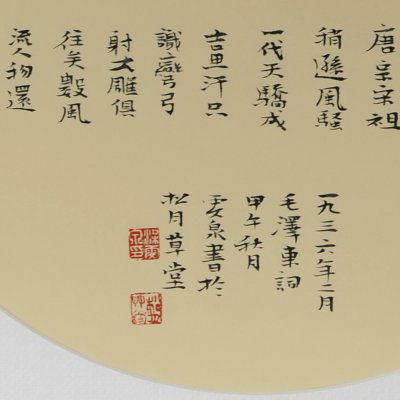 唐宗宋祖
稍遜風騷
一代天驕成
吉思汗只
識彎弓
射大雕俱
往矣數風
流人物還
一九三六年二月
毛澤東詞
甲午秋月
泉書於
松月草堂